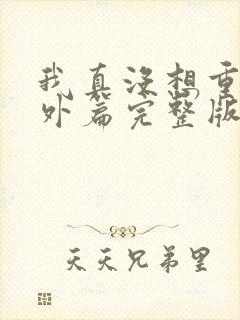 我真没想重
外篇完整版
天天兄弟里